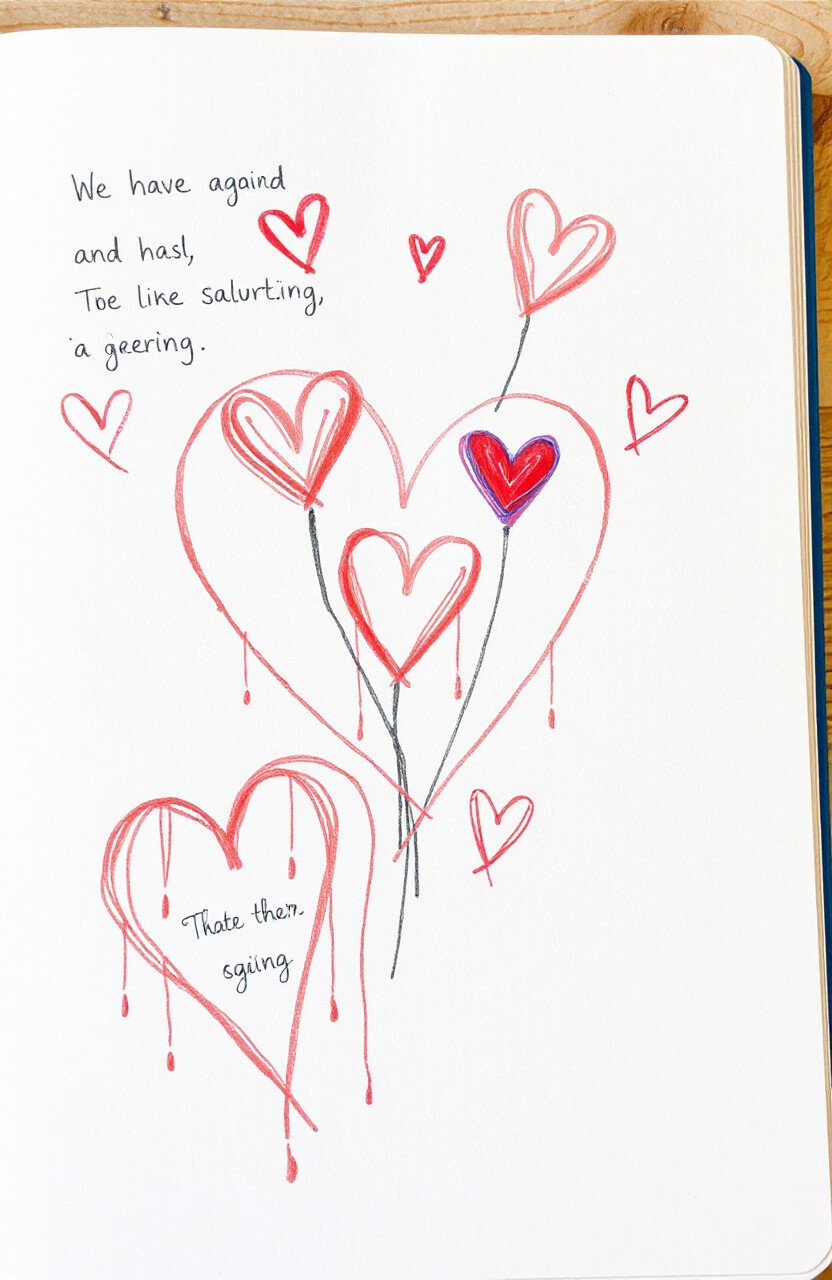 We have againd
and hasl,
Toe like salurting,
a geering.
Thate then
sgiing